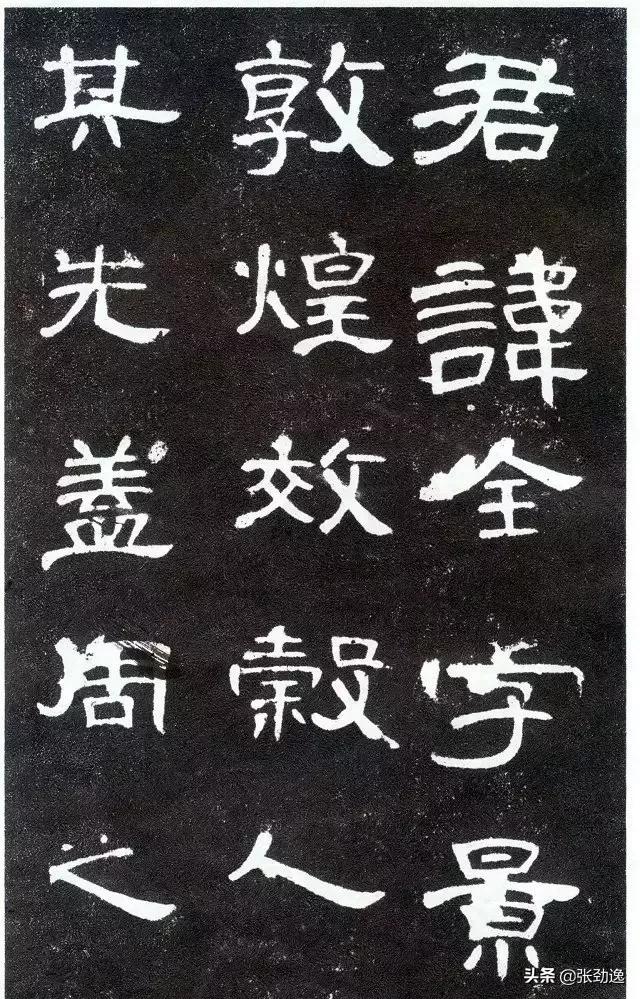 君諱全字景
敦煌效穀人
其先蓋周之
头条 @张劲逸